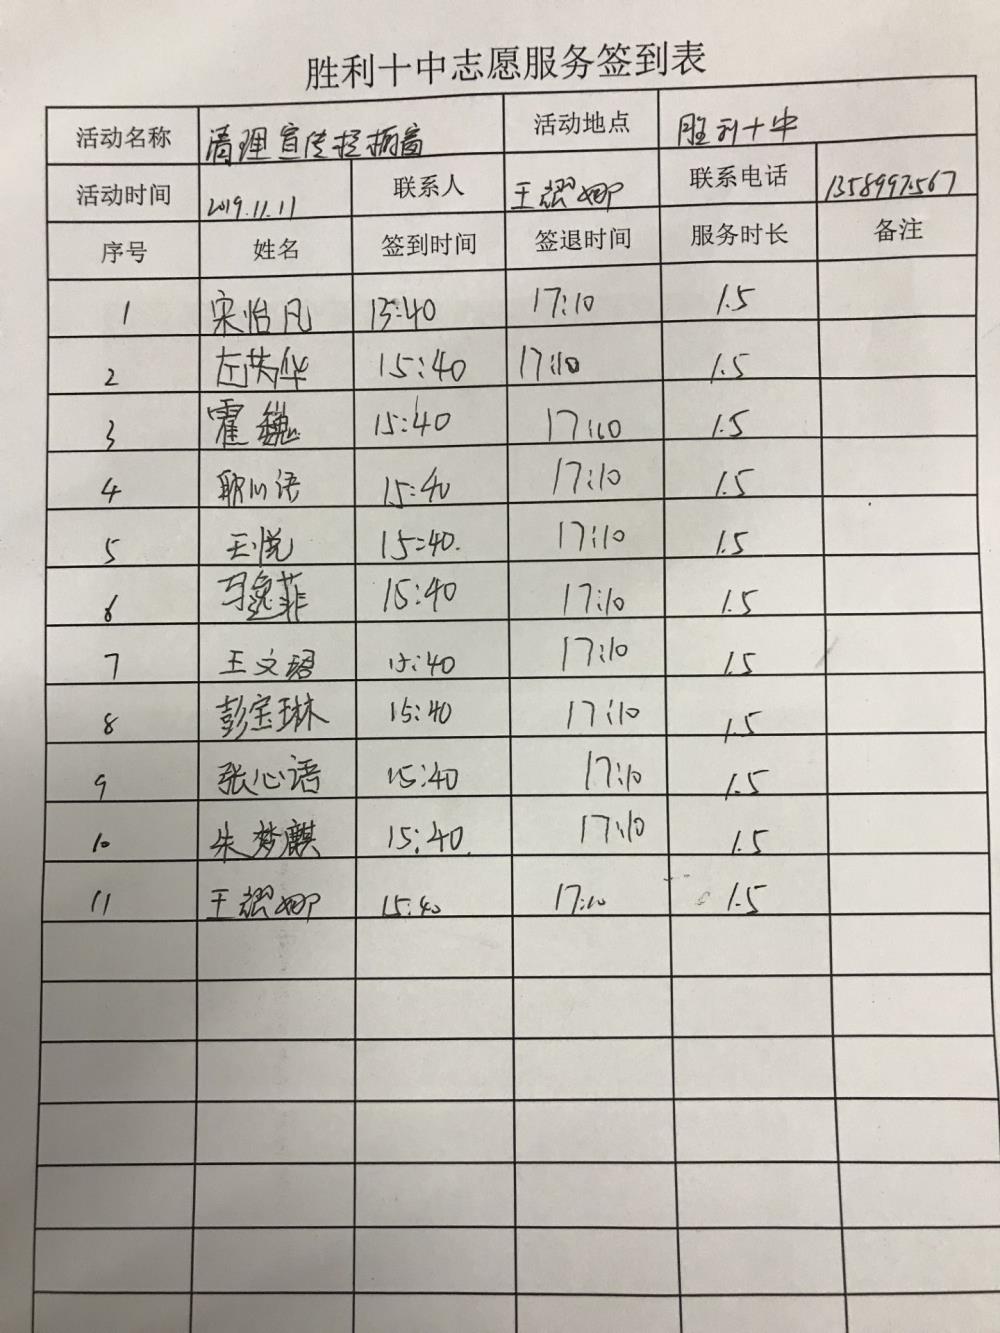 胜利十中志愿服务签到表
活动名称 清理宣传栏 活动地点 胜利十中
活动时间 2019.11.11 联系人 王耀娜 联系电话
序号 姓名 签到时间 签退时间 服务时长 备注
1 宋怡凡 15:40 17:10 1.5
2 左英华 15:40 17:10 1.5
3 霍巍 15:40 17:10 1.5
4 耿心语 15:40 17:10 1.5
5 王悦 15:40 17:10 1.5
6 马逸菲 15:40 17:10 1.5
7 王文珺 15:40 17:10 1.5
8 彭宝琳 15:40 17:10 1.5
9 张心语 15:40 17:10 1.5
10 朱梦麒 15:40 17:10 1.5
11 王耀娜 15:40 17:10 1.5